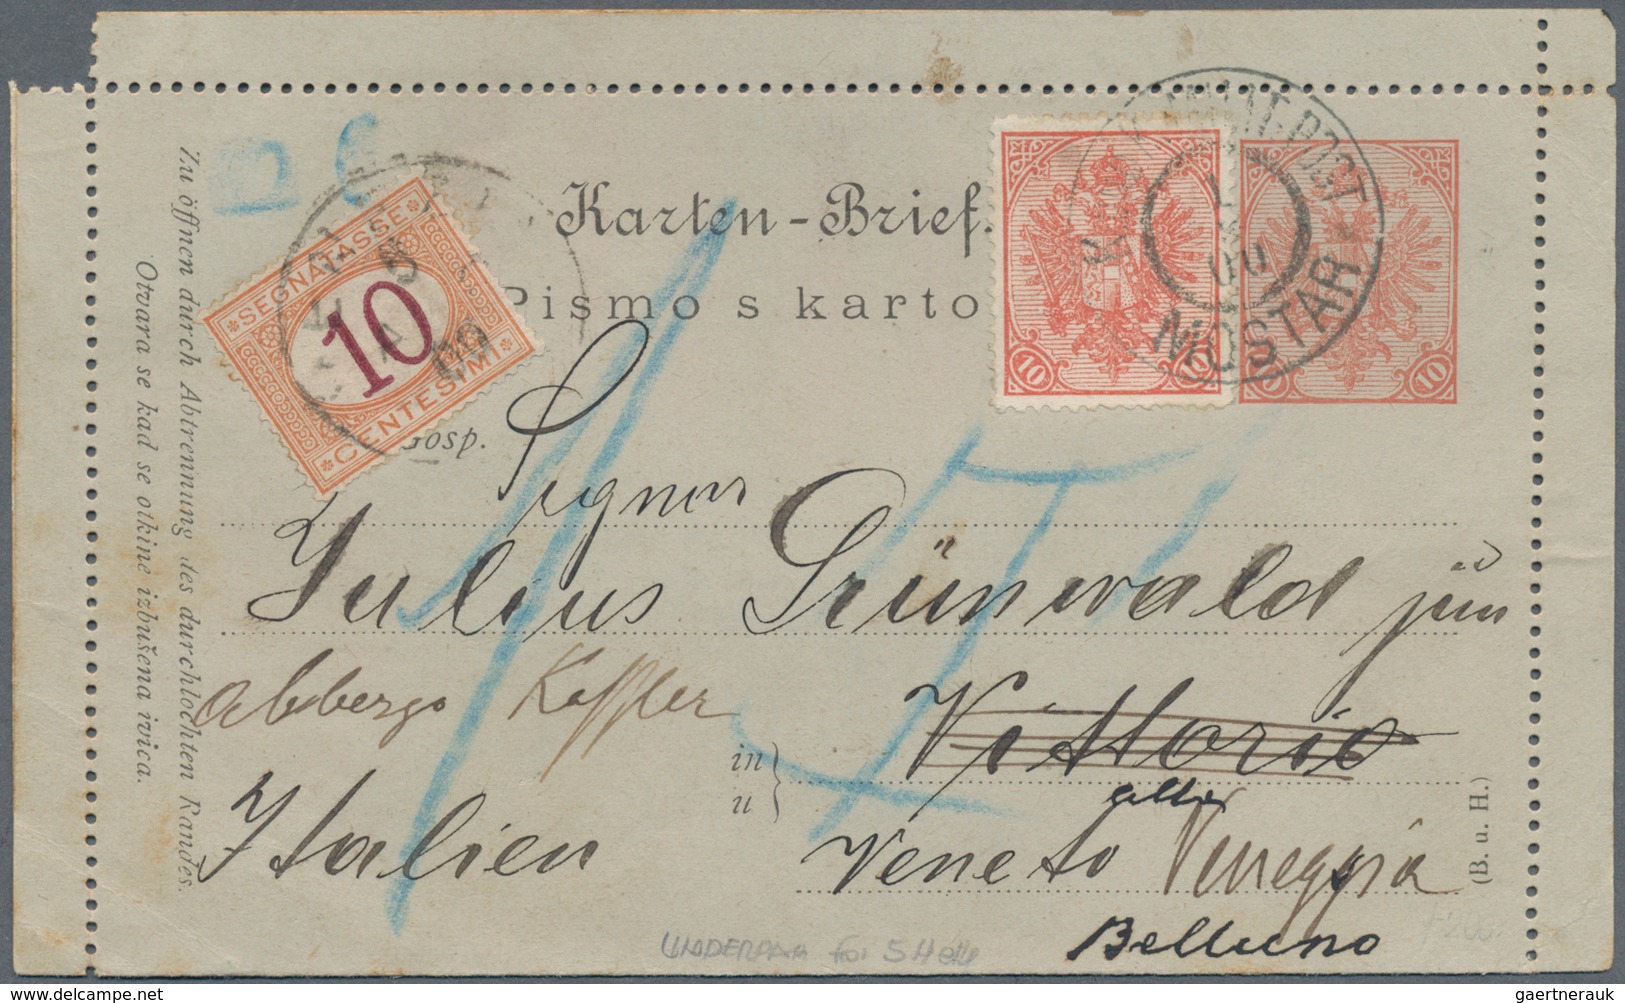 Karten-Brief.
Pismo s karto
SEGNATASSE
10
CENTESIMI
10
10
10
MOSTAR
00
Gosp.
Signor
Julius Grünwald jun
Albergo Koffler
in
u
Vittorio
Italien
Veneto Veneggia
Belluno
(B. u. H.)
Zu öffnen durch Abtrennung des durchlochten Randes.
Otvara se kad se otkine izbušena ivica.
15
UNDERPAID FOR 5 Heller
gaertnerauk @ delcampe.net